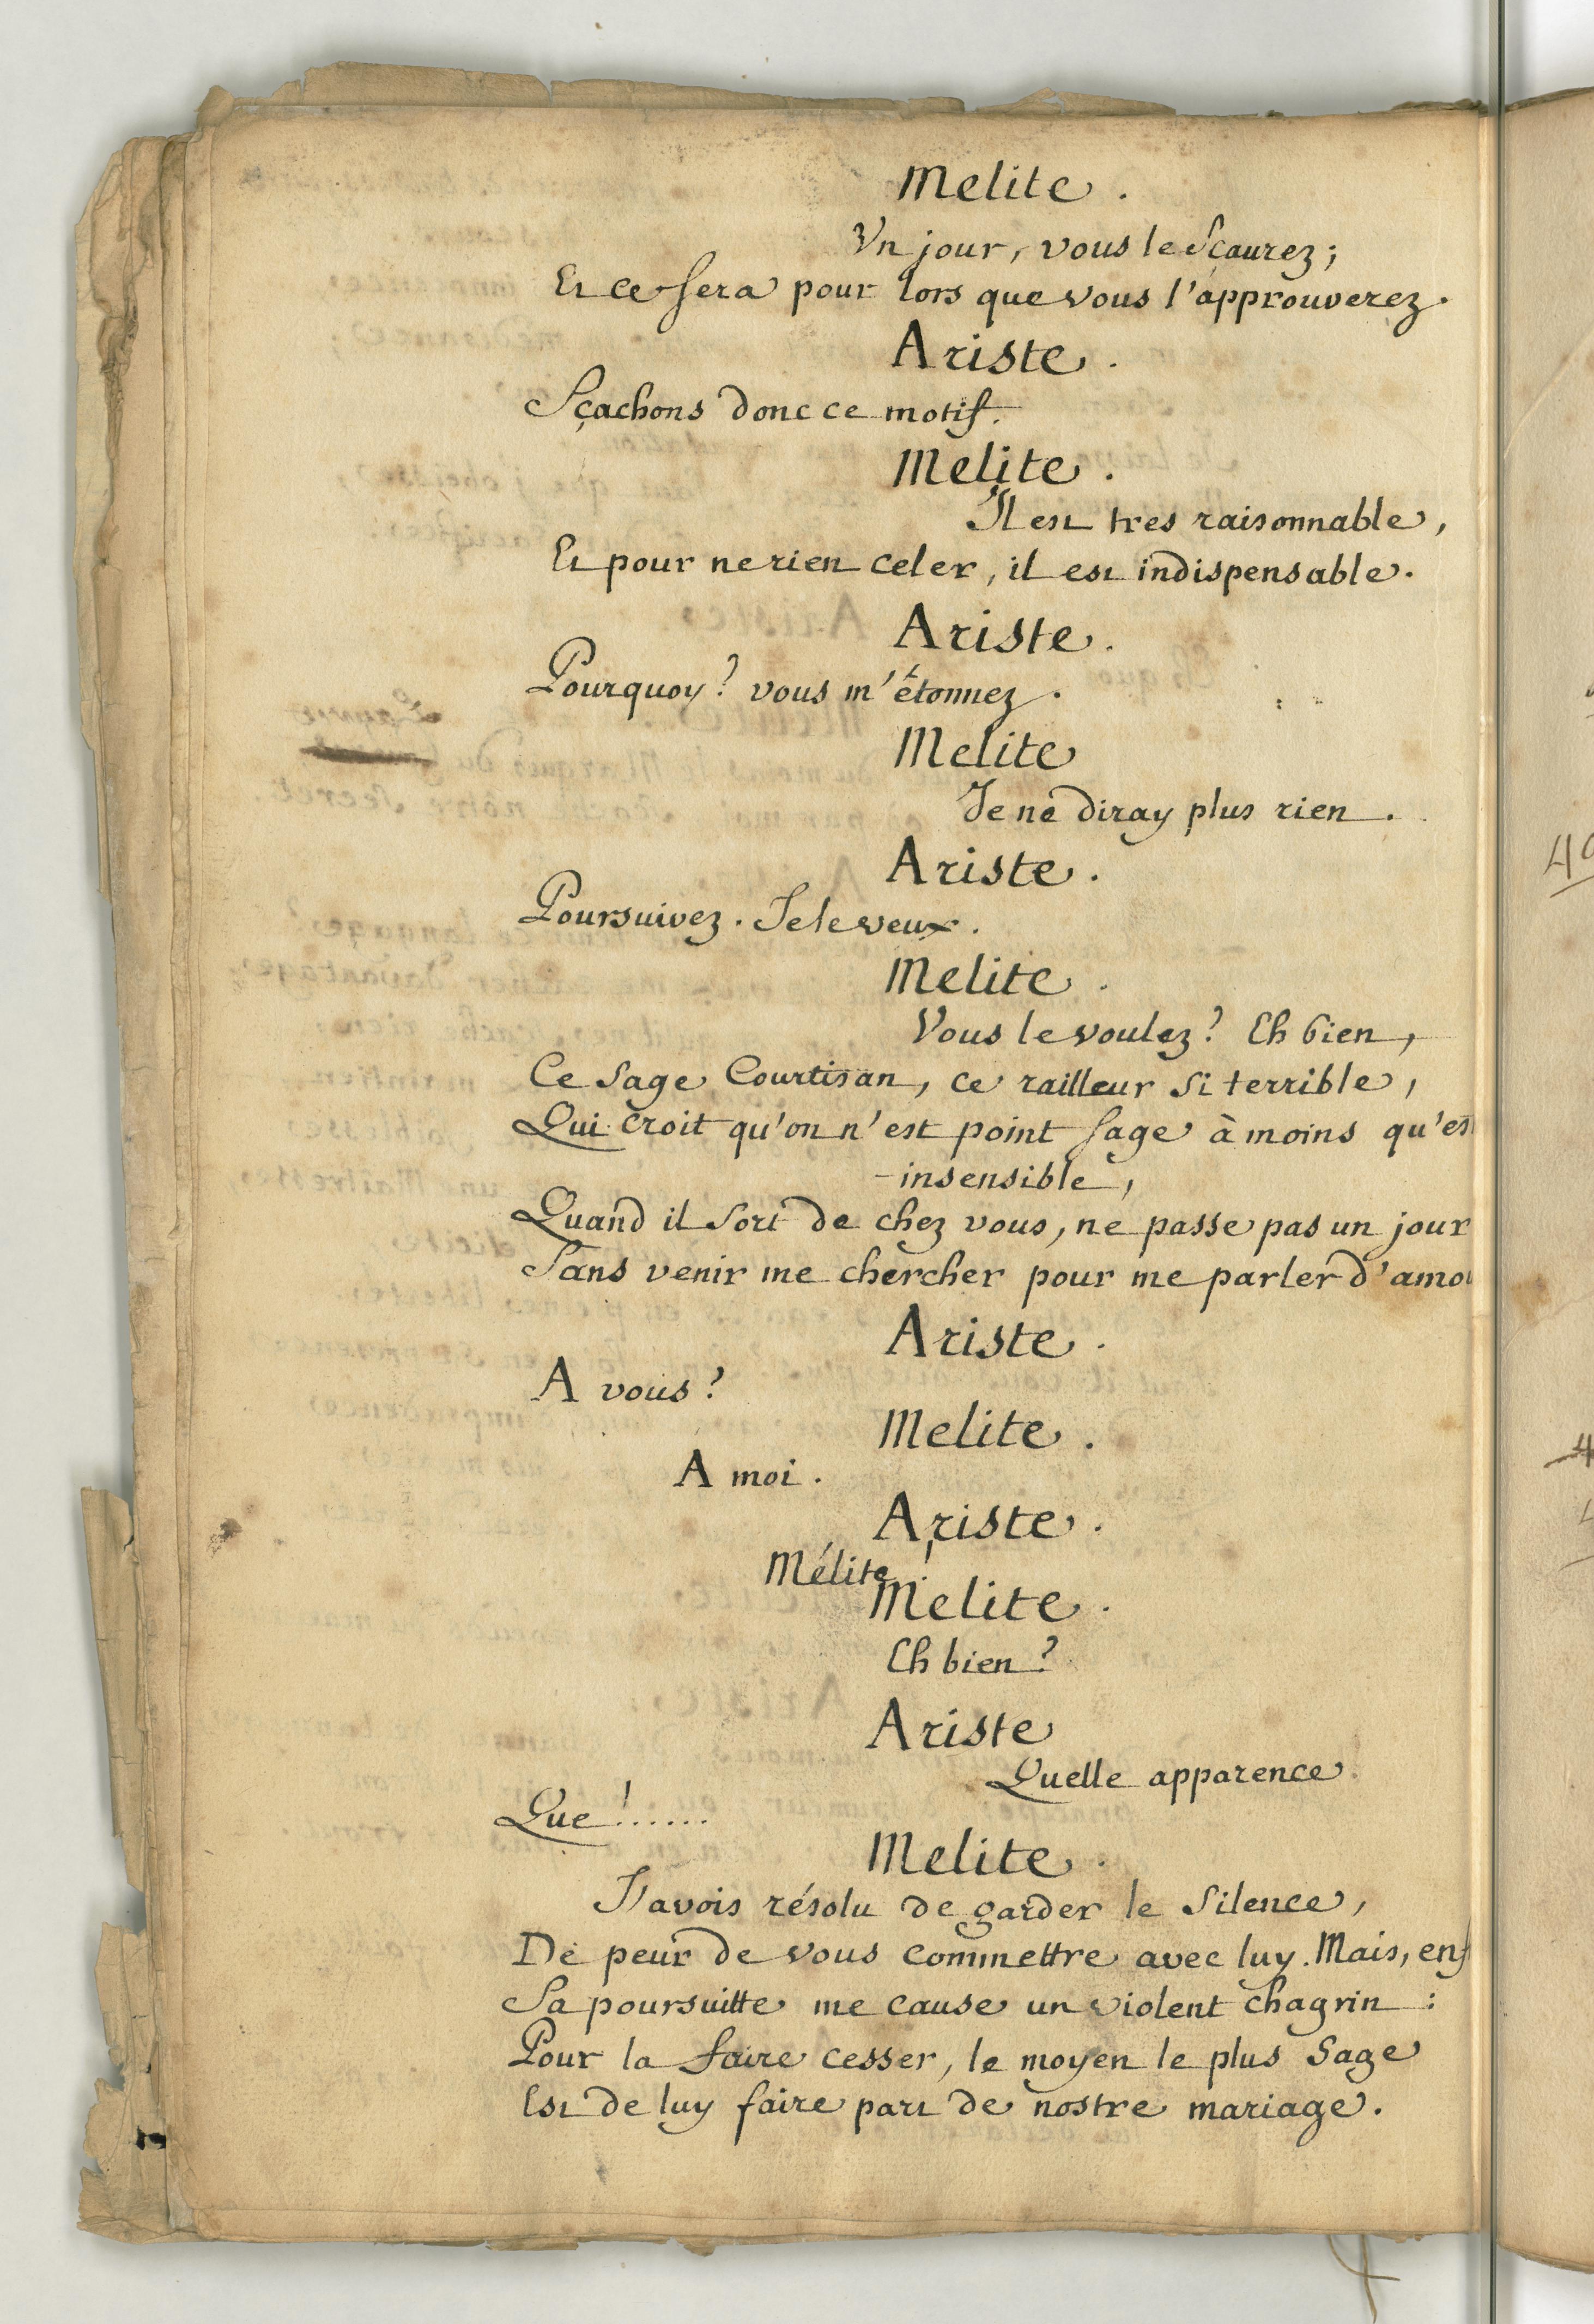 Melite.
Vn jour, vous le Sçaurez;
Et ce sera pour lors que vous l'approuverez.
Ariste.
Sçachons donc ce motif.
Melite.
Il est tres raisonnable,
Et pour ne rien celer, il est indispensable.
Ariste.
Pourquoy? vous m'étonnez.
Melite
Je ne diray plus rien.
Ariste.
Poursuivez. Je le veux.
Melite.
Vous le voulez? Eh bien,
Ce sage Courtisan, ce railleur si terrible,
Qui croit qu'on n'est point sage à moins qu'es
insensible,
Quand il sort de chez vous, ne passe pas un jour
Sans venir me chercher pour me parler d'amou
Ariste.
A vous?
Melite.
A moi.
Ariste.
Mélite!
Melite.
Eh bien?
Ariste
Quelle apparence
Que!......
Melite.
J'avois résolu de garder le Silence,
De peur de vous commettre avec luy. Mais, enf
Sa poursuitte me cause un violent chagrin:
Pour la faire cesser, le moyen le plus Sage
Est de luy faire part de nostre mariage.